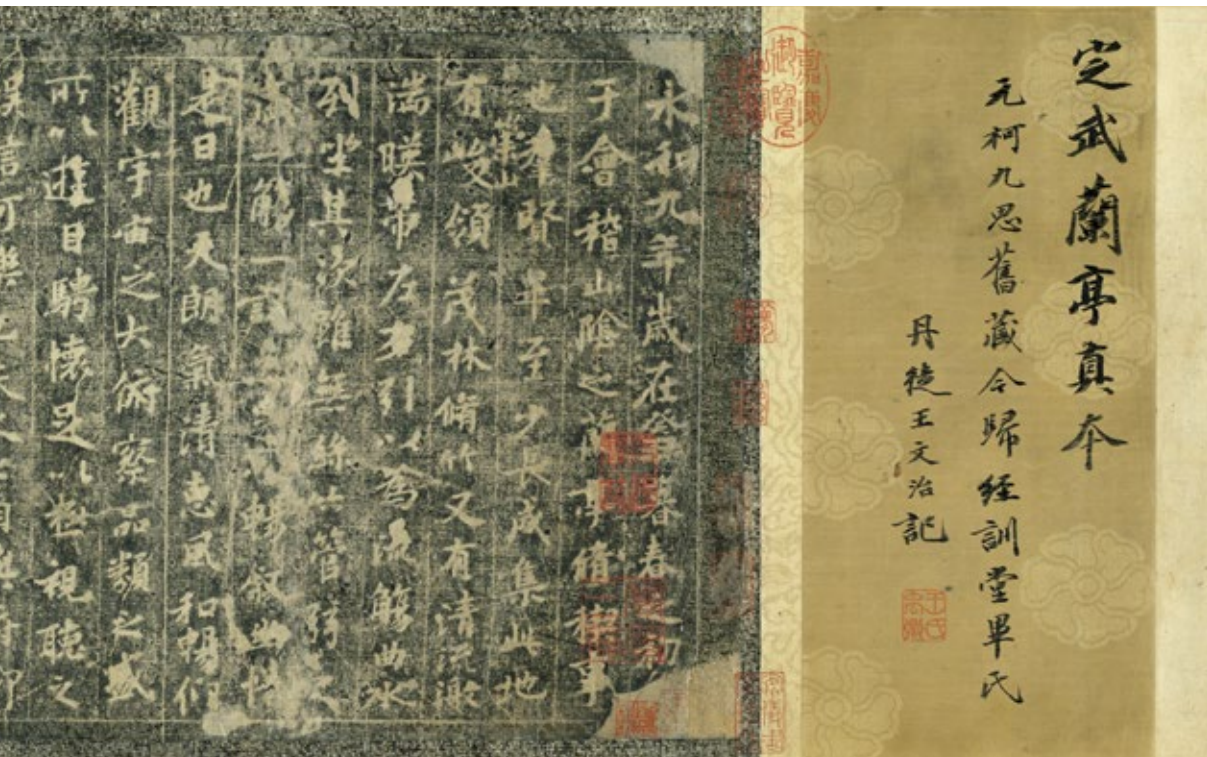 定武蘭亭真本
元柯九思舊藏今歸經訓堂畢氏
丹徒王文治記
王氏禹卿
永和九年歲在癸丑暮春之初
于會稽山陰之蘭亭脩稧事
也羣賢畢至少長咸集此地
有崇山峻領茂林脩竹又有清流激
湍暎帶左右引以為流觴曲水
列坐其次雖無絲竹管弦之
盛一觴一詠亦足以暢叙幽情
是日也天朗氣清惠風和暢仰
觀宇宙之大俯察品類之盛
所以遊目騁懷足以極視聽之
娛信可樂也夫人之相與俯仰